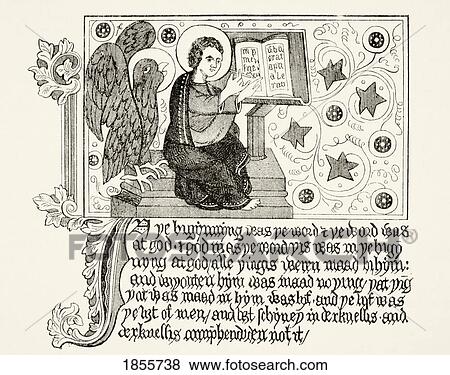 In ye bigynnyng was ye word & ye word was
at god & god was ye word yis was in ye bigyn
nyng at god, alle yingis weren maad bi hym:
and wiyouten hym was maad no ying, yat ying
yat was maad in hym was lyf, and ye lyf was
ye lyȝt of men, and lyȝt schyney in derknessis and
derknessis comprehendiden not it/
1855738 www.fotosearch.com